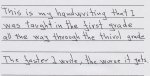 This is my handwriting that I
was taught in the first grade
all the way through the third grade
The faster I write, the worse it gets